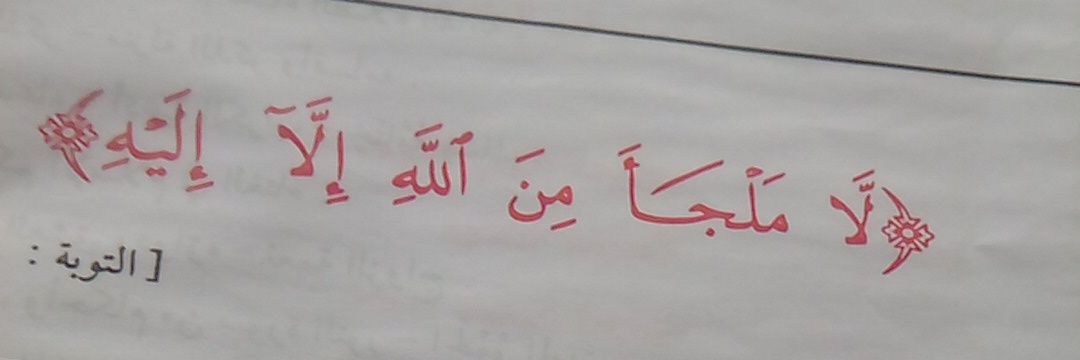 ﴿لَّا مَلْجَأَ مِنَ ٱللَّهِ إِلَّآ إِلَيْهِ﴾
[التوبة :